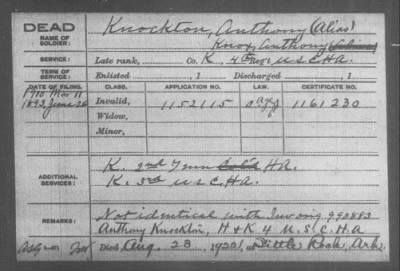 DEAD
NAME OF SOLDIER:
Knockton, Anthony (Alias)
Knox, Anthony
SERVICE:
Late rank, Co. K, 4th Regt U.S.C.H.A.
TERM OF SERVICE:
Enlisted , 1 Discharged , 1
DATE OF FILING. CLASS. APPLICATION NO. LAW. CERTIFICATE NO.
1892, June 26 Invalid, 1152115 1161230
Widow,
Minor,
ADDITIONAL SERVICES:
K. 2nd Tenn H.A.
K. 3rd U.S.C.H.A.
REMARKS:
Not identical with Inv orig 990883
Anthony Knockton, H & K 4 U.S.C.H.A
Died Aug. 23, 1920, at Little Rock, Ark.